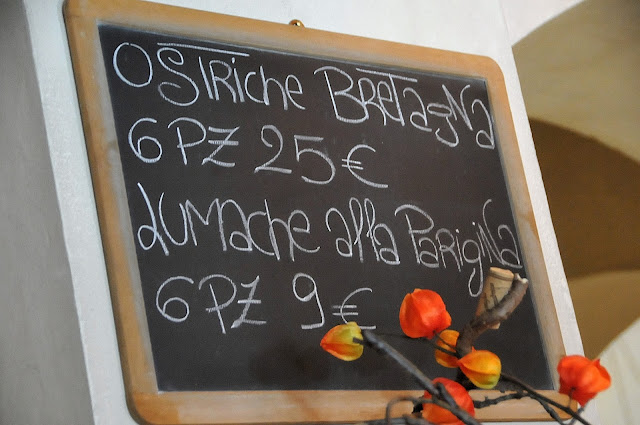 OSTRiche BRETagNa
6 PZ 25 €
LUMache alla PaRigiNa
6 PZ 9 €